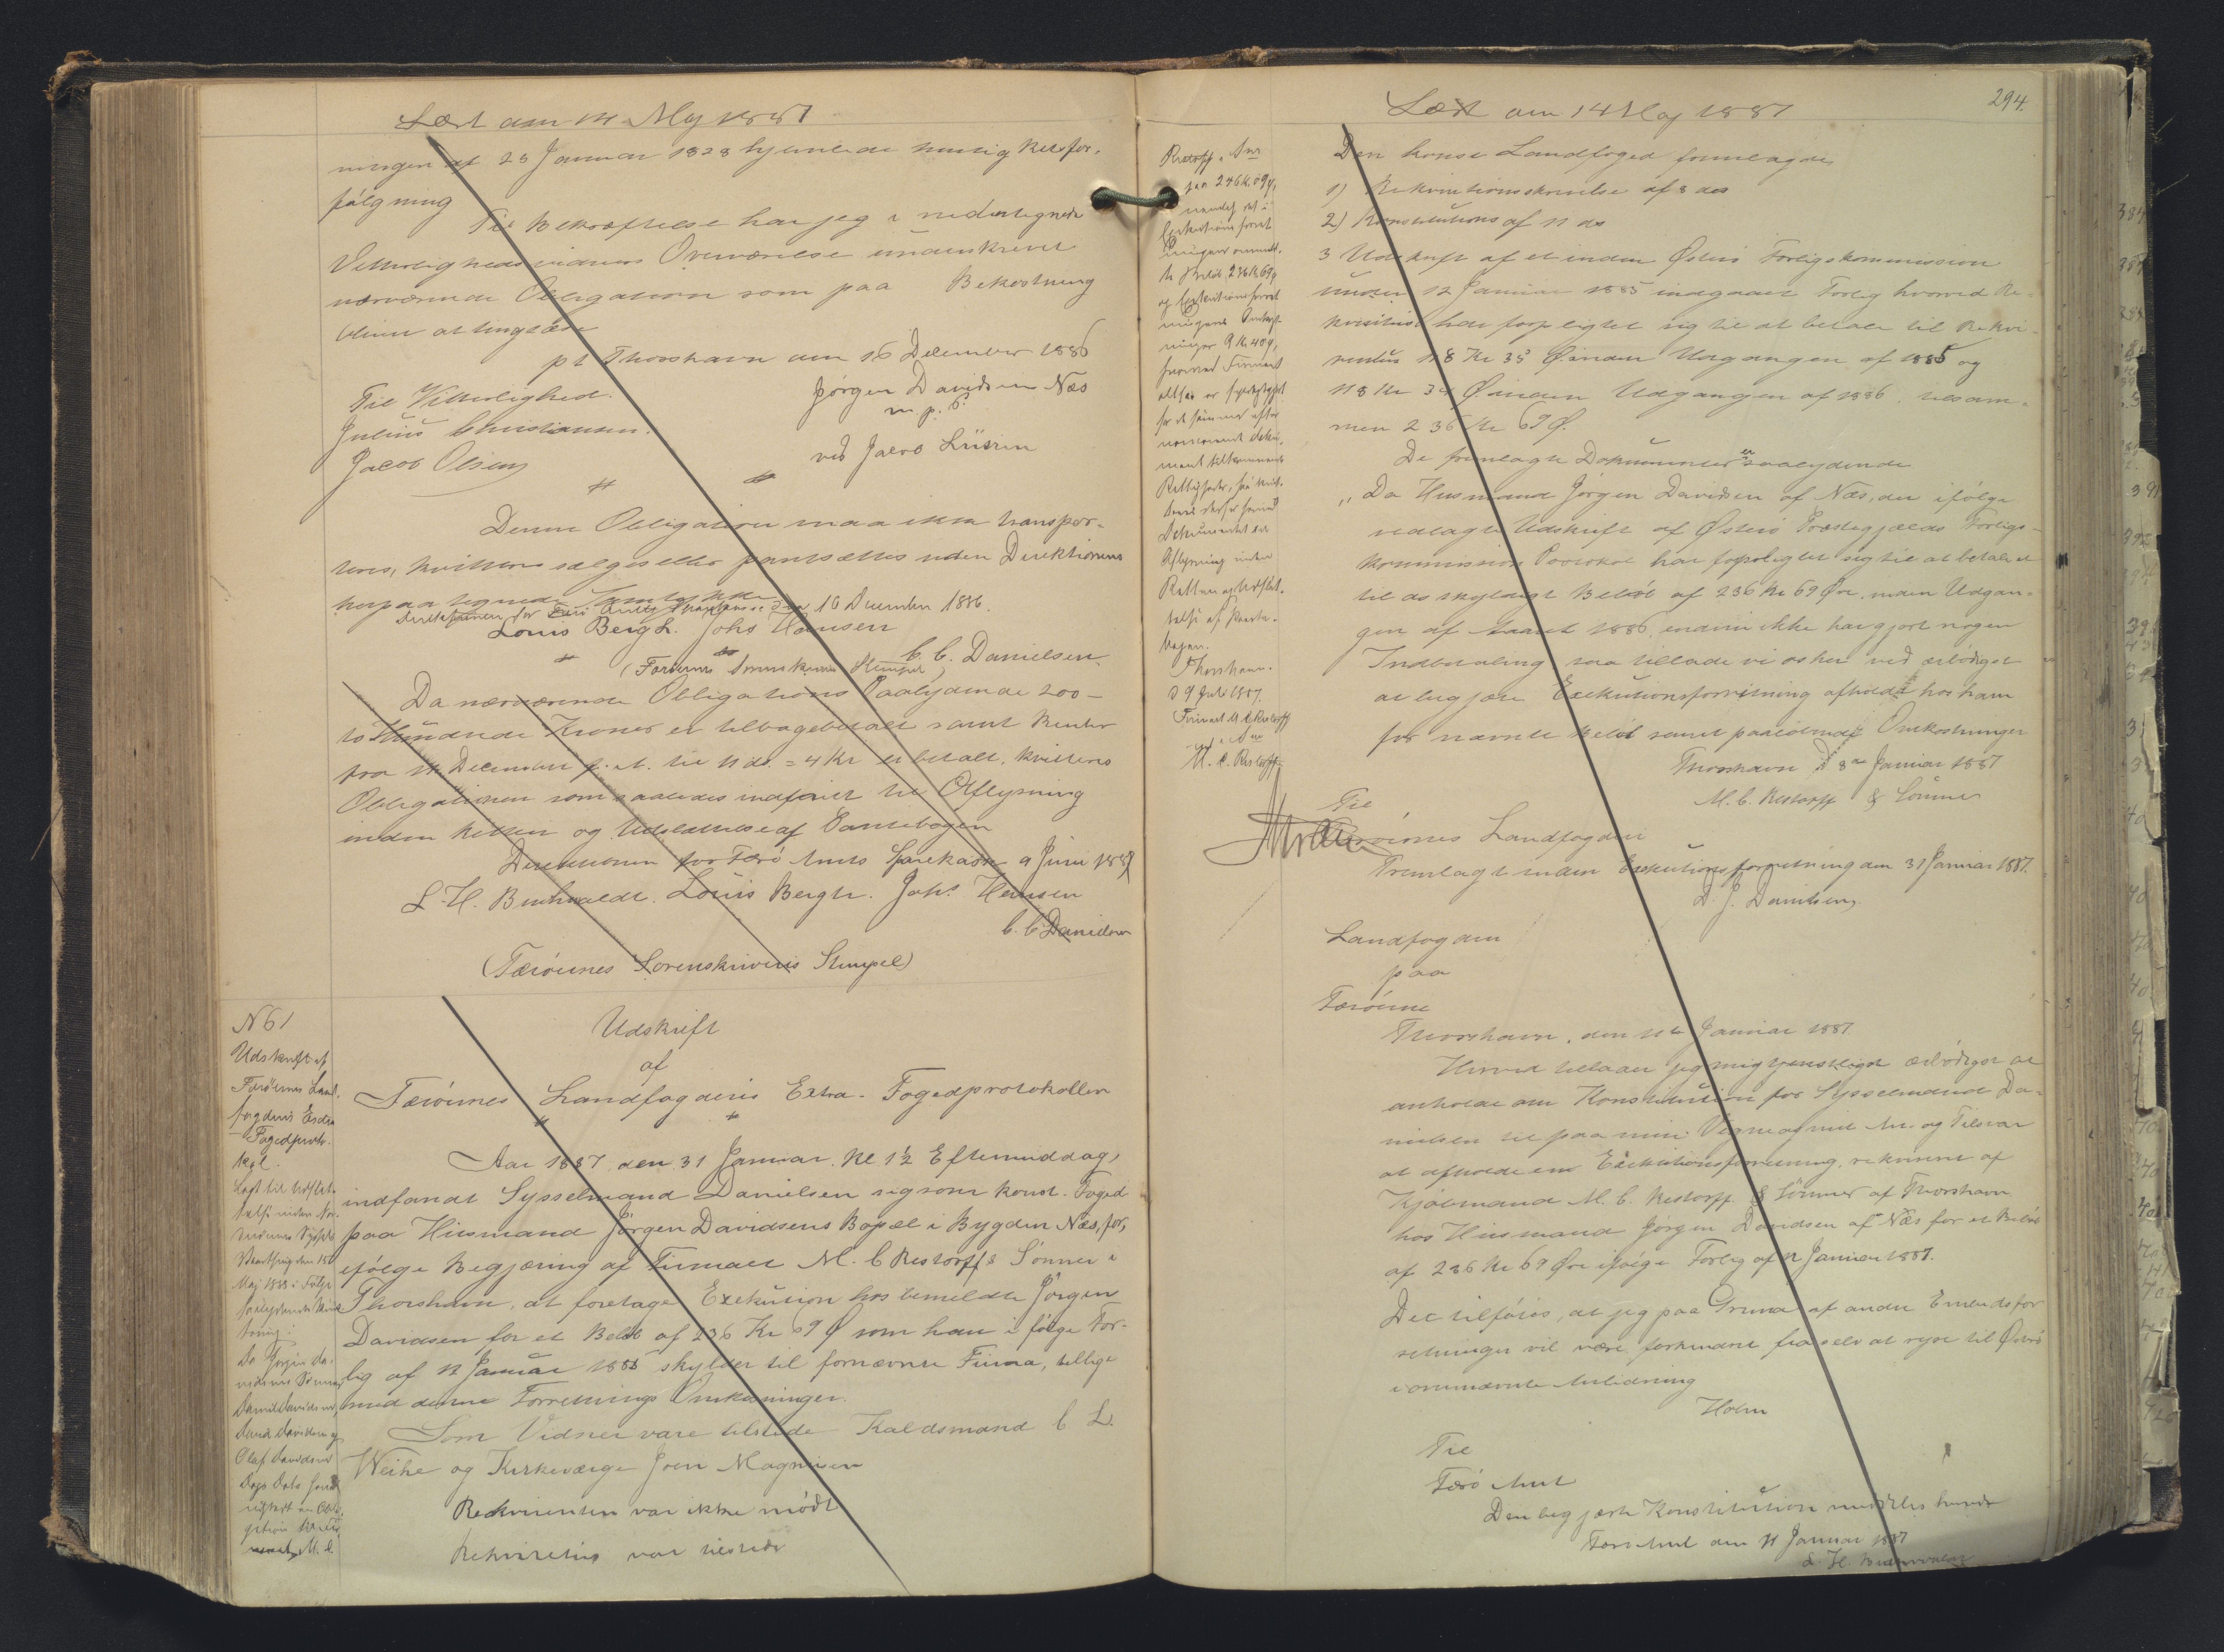 Læst den 14 Maj 1887
ningen af 28 Januar 1828 hjemlede hurtig Retsfor-
følgning
Til Bekræftelse har jeg i nedentegnede
Vitterlighedsvidners Overværelse underskrevet
nærværende Obligation som paa Bekostning
bliver at tinglæse
pt Thorshavn den 16 December 1886
Til Vitterlighed.
Jørgen Davidsen Næs
Julius Christiansen.
m. p. P.
Jacob Olsen
ved Jacob Lützen
Denne Obligation maa ikke transpor-
teres, kvitteres sælges eller pantsættes uden Direktionens
herpaa tegnede Samtykke
Direktionen for Færø Amts Sparekasse den 16 December 1886.
Louis Bergh. Johs Hansen
C. C. Danielsen
(Færøernes Sorenskriveris Stempel)
Da nærværende Obligations Paalydende 200 -
to Hundrede Kroner er tilbagebetalt samt Renter
fra 11 December f. A. til 11 ds. = 4 Kr er betalt, kvitteres
Obligationen som saaledes indfriet til Aflysning
inden Retten og Udslættelse af Pantebogen
Direktionen for Færø Amts Sparekasse 9 Juni 1887
L. H. Buchwaldt. Louis Bergh. Johs. Hansen
C. C. Danielsen
(Færøernes Sorenskriveris Stempel)
N 61
Udskrift af
Færøernes Land-
fogderis Extra
Fogedproto-
kol.
Læst til Udslet-
telse inden
Maj 1888 i Følge
saalydende Kvit-
tering:
Da Jørgen Da-
vidsens Sønner
Daniel Davidsen,
David Davidsen og
Olaf Davidsen
Udskrift
af
Færøernes Landfogderis Extra-Fogedprotokollen
Aar 1887 den 31 Januar. Kl 1½ Eftermiddag,
indfandt Sysselmand Danielsen sig som konst. Foged
paa Husmand Jørgen Davidsens Bopæl i Bygden Næs, for,
ifølge Begjæring af Firmaet M. C. Restorff & Sønner i
Thorshavn, at foretage Exekution hos bemeldte Jørgen
Davidsen for et Beløb af 236 Kr 69 Ø som han i følge For-
lig af 12 Januar 1885 skylder til fornævnte Firma, tillige
med denne Forretnings Omkostninger.
Som Vidner vare tilstede Kaldsmand C L.
Weihe og Kirkeværge Joen Magnusen
Rekvirenten var ikke mødt
Rekvisitus var tilstede
294.
Læst den 14 Maj 1887
Restorff & Sør
har 246 Kr 09 Ø,
nemlig det i
Exekutionsforret-
ningen ommeld-
te Beløb 236 Kr 69 Ø
og Exekutionsforret-
ningens Omkost-
ninger 9 Kr 40 Ø,
hvorved Firmaet
altsaa er fyldestgjort
for de samme efter
nærværende Doku-
ment tilkommende
Rettigheder, saa kvit-
teres derfor herved
Dokumentet til
Aflysning inden
Retten og Udslet-
telse af Pante-
bogen.
Thorshavn.
d 9 Juli 1887.
Firmaet M C Restorff
M. C. Restorff
Den konst Landfoged fremlagde
1) Rekvisitionsskrivelse af 8 ds
2) Konstitutions af 11 ds
3 Udskrift af et inden Østerø Forligskommission
under 12 Januar 1885 indgaaet Forlig hvorved Re-
kvisitus har forpligtet sig til at betale til Rekvi-
rentus 118 Kr 35 Ø inden Udgangen af 1885 og
118 Kr 34 Ø inden Udgangen af 1886. tilsam-
men 236 Kr 69 Ø.
De fremlagte Dokumenter er saalydende
„Da Husmand Jørgen Davidsen af Næs, der ifølge
vedlagte Udskrift af Østerø Præstegjælds Forligs-
kommissions Protokol har forpligtet sig til at betale et
til os skyldigt Beløb af 236 Kr 69 Øre. inden Udgan-
gen af Aaret 1886, endnu ikke har gjort nogen
Indbetaling saa tillade vi os her ved ærbødigst
at begjære Exekutionsforretning afholdt hos ham
for nævnte Beløb samt paaløbende Omkostninger
Thorshavn d 8de Januar 1887
M. C. Restorff & Sønner
Til
Færøernes Landfogderi
Fremlagt inden Exekutionsforretning den 31 Januar 1887.
D. J. Danielsen
Landfogden
paa
Færøerne
Thorshavn, den 11te Januar 1887.
Herved tillader jeg mig tjenstligst ærbødigst at
anholde om Konstitution for Sysselmand Da-
nielsen til paa mine Vegne og med An- og Tilsvar
at afholde en Exekutionsforretning, rekvireret af
Kjøbmand M. C. Restorff & Sønner af Thorshavn
hos Husmand Jørgen Davidsen af Næs for et Beløb
af 236 Kr 69 Øre ifølge Forlig af 12 Januar 1887.
Det tilføies, at jeg paa Grund af andre Embedsfor
retninger vil være forhindret fra selv at rejse til Østerø
i ommeldte Anledning
Holm
Til
Færø Amt
Den begjærte Konstitution meddeles herved
Færø Amt den 11 Januar 1887
L. H. Buchwaldt